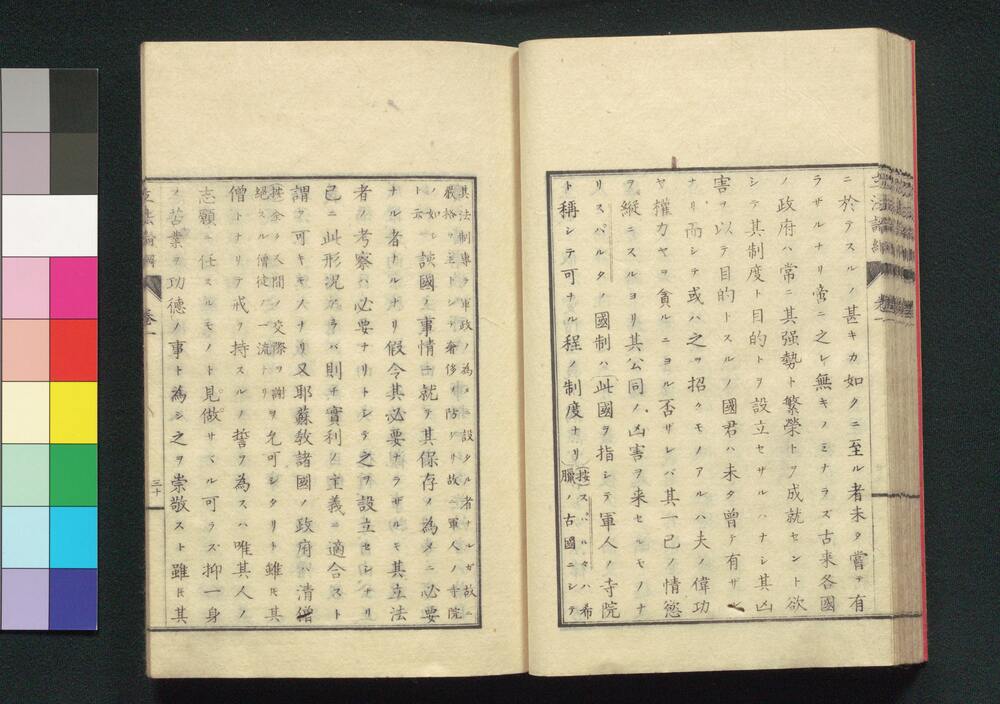 ニ於テスルノ甚キカ如クニ至ル者未タ嘗テ有
ラザルナリ啻ニ之レ無キノミナラズ古来各國
ノ政府ハ常ニ其强勢ト繁榮トヲ成就セント欲
シテ其制度ト目的トヲ設立セサルハナシ其凶
害ヲ以テ目的トスルノ國君ハ未タ曾テ有サル
ナリ而シテ或ハ之ヲ招クモノアルハ夫ノ偉功
ヤ權力ヤヲ貪ルニヨル否ザレバ其一己ノ情慾
ヲ縦ニスルヨリ其公同ノ凶害ヲ来セルモノナ
リスパルタノ國制ハ此國ヲ指シテ軍人ノ寺院
ト稱シテ可ナル程ノ制度ナリ
按スパルタハ希
臘ノ古國ニシテ
其法制專ラ軍政ノ為メニ設タル者ナルガ故ニ
嚴格ヲ主トシテ奢侈ノ防ゲリ故ニ軍人ノ寺院
ノ如シ
ト云
該國ノ事情ニ就テ其保存ノ為メニ必要
ナル者ナルナリ假令其必要ナラザルモ其立法
者ノ考察ハ必要ナリトシテ之ヲ設立セシナリ
已ニ此形況アラバ則チ實利ノ主義ニ適合スト
謂フ可キモノナリ又耶蘇敎諸國ノ政府ハ清僧
絶スル僧徒ノ一流ナリ
ヲ允可シタリト雖𪜈其
僧トナリテ戒ヲ持スルノ誓ヲ為スハ唯其人ノ
志願ニ任スルモノト見做サヾル可ラズ抑一身
ノ苦業ヲ功德ノ事ト為シ之ヲ崇敬スト雖𪜈其
立法論綱
卷一
三十